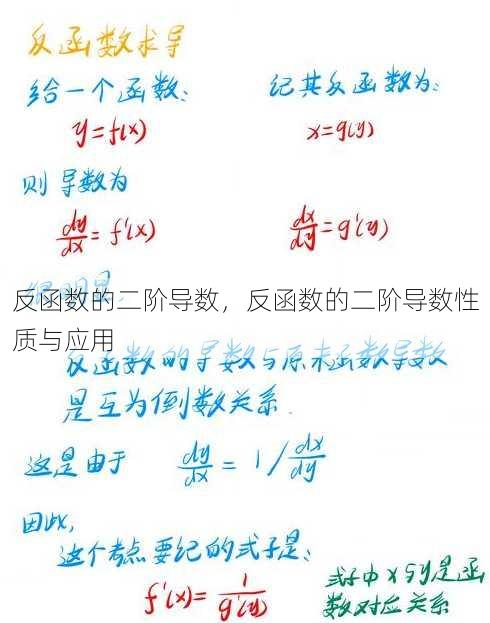 反函数求导
给一个函数:
记其反函数为:
y=f(x)
x=g(y)
则导数为
dy/dx = f'(x)
dx/dy = g'(y)
很明显,
反函数的二阶导数，反函数的二阶导数性
质与应用
反函数的导数与原来函数导数
是互为倒数关系.
这是由于 dy/dx = 1/dx/dy
因此,
这个考点要记的式子是:
f'(x)=1/g'(y)
式子中x与y是函
数对应关系